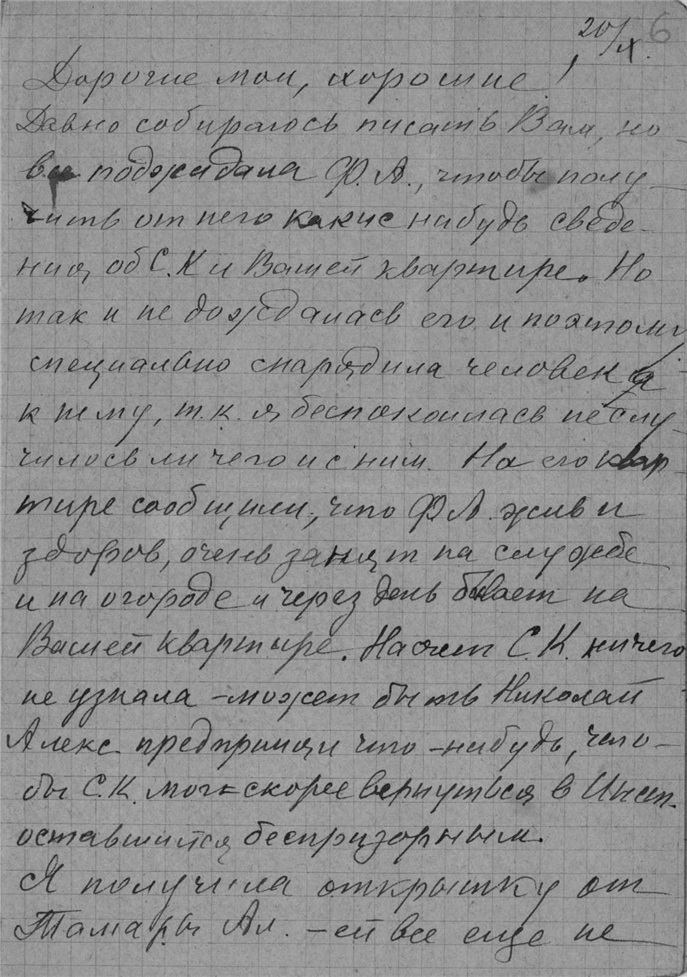 20/X. 6
Дорогие мои, хорошие!
Давно собираюсь писать Вам, но
все поджидала Ф.А., чтобы полу-
чить от него какие нибудь сведе-
ния, об С.К и Вашей квартире. Но
так и не дождалась его и поэтому
специально снарядила человека
к нему, т.к. я беспокоилась не слу-
чилось ли чего и с ним. На его квар
тире сообщили, что Ф.А. жив и
здоров, очень занят на службе
и на огороде и через день бывает на
Вашей квартире. Насчет С.К. ничего
не узнала – может быть Николай
Алекс предпринял что-нибудь, что-
бы С.К. мог скорее вернуться в Инст.
оставшийся беспризорным.
Я получила открытку от
Тамары Ал. – ей все еще не